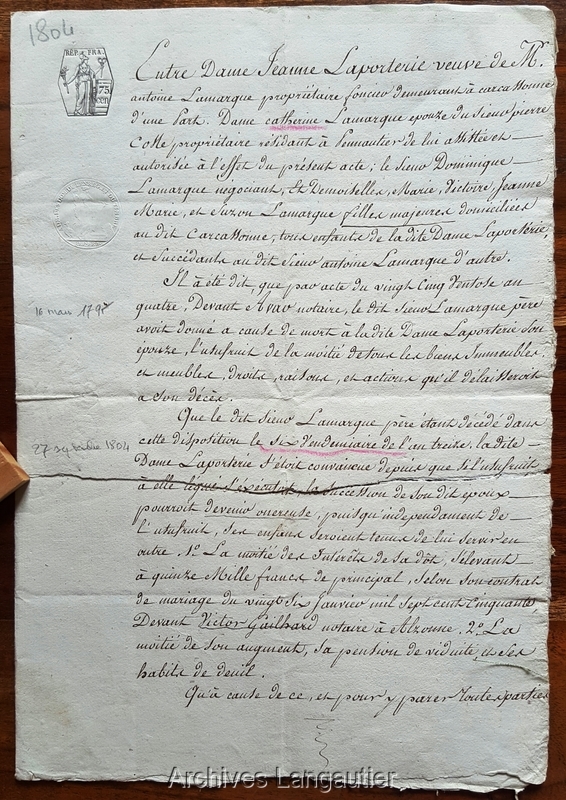 1804
RÉP. FRA.
75
cen
Entre Dame Jeanne Laporterie veuve de M.
antoine Lamarque propriétaire foncier demeurant à carcassonne
d'une part. Dame catherine Lamarque epouze du Sieur pierre
Coste propriétaire résidant à Pennautier de lui assistée et
autorisée à l'effet du présent acte; le sieur Dominique
Lamarque negociant, Et Demoiselles, Marie, Victoire, Jeanne
Marie, et Suzon Lamarque filles majeures domiciliées
au dit Carcassonne, tous enfants de la dite Dame Laporterie,
et Succédants au dit Sieur antoine Lamarque d'autre.
Il à été dit, que par acte du vingt Cinq Ventose an
quatre, Devant notaire, le dit Sieur Lamarque père
16 mars 179
avoit donné a cause de mort à la dite Dame Laporterie Son
épouze, l'usufruit de la moitié de tous les biens Immeubles
et meubles, droits, raisons, et actions qu'il délaisseroit
a Son décès.
Que le dit Sieur Lamarque père étant décédé dans
27 septembre 1804
cette disposition le Six Vendemiaire de l'an treize, la dite
Dame Laporterie S'étoit convaincue depuis que Si l'usufruit
à elle légué S'exécutoit, la succession de Son dit epoux
pourroit devenir onereuse, puisqu'independament de
l'usufruit, Ses enfans Seroient tenus de lui Servir en
outre. 1.° La moitié des Intérêts de Sa dôt, S'élevant
à quinze Mille francs de principal, Selon Son contrat
de mariage du vingt Six Janvier mil Sept cent Cinquante
Devant Victor Gailhard notaire à Alzonne. 2.° La
moitié de Son augment, Sa pension de viduité et Ses
habits de deuil.
Qu'à cause de ce, et pour y parer toutes parties
Archives Langautier